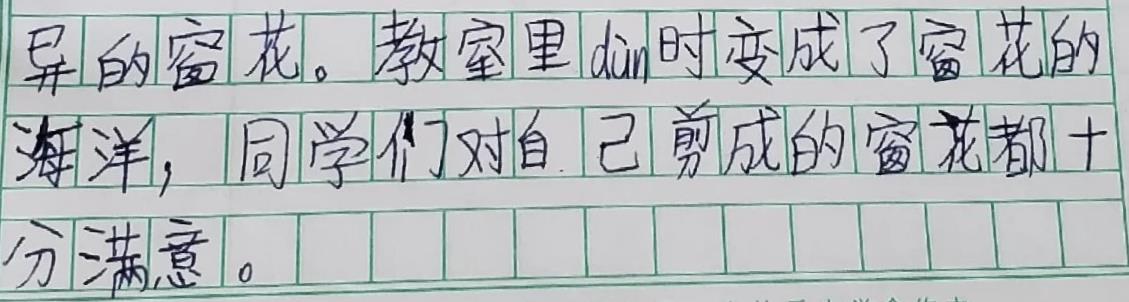 异的窗花。教室里dùn时变成了窗花的
海洋，同学们对自己剪成的窗花都十
分满意。